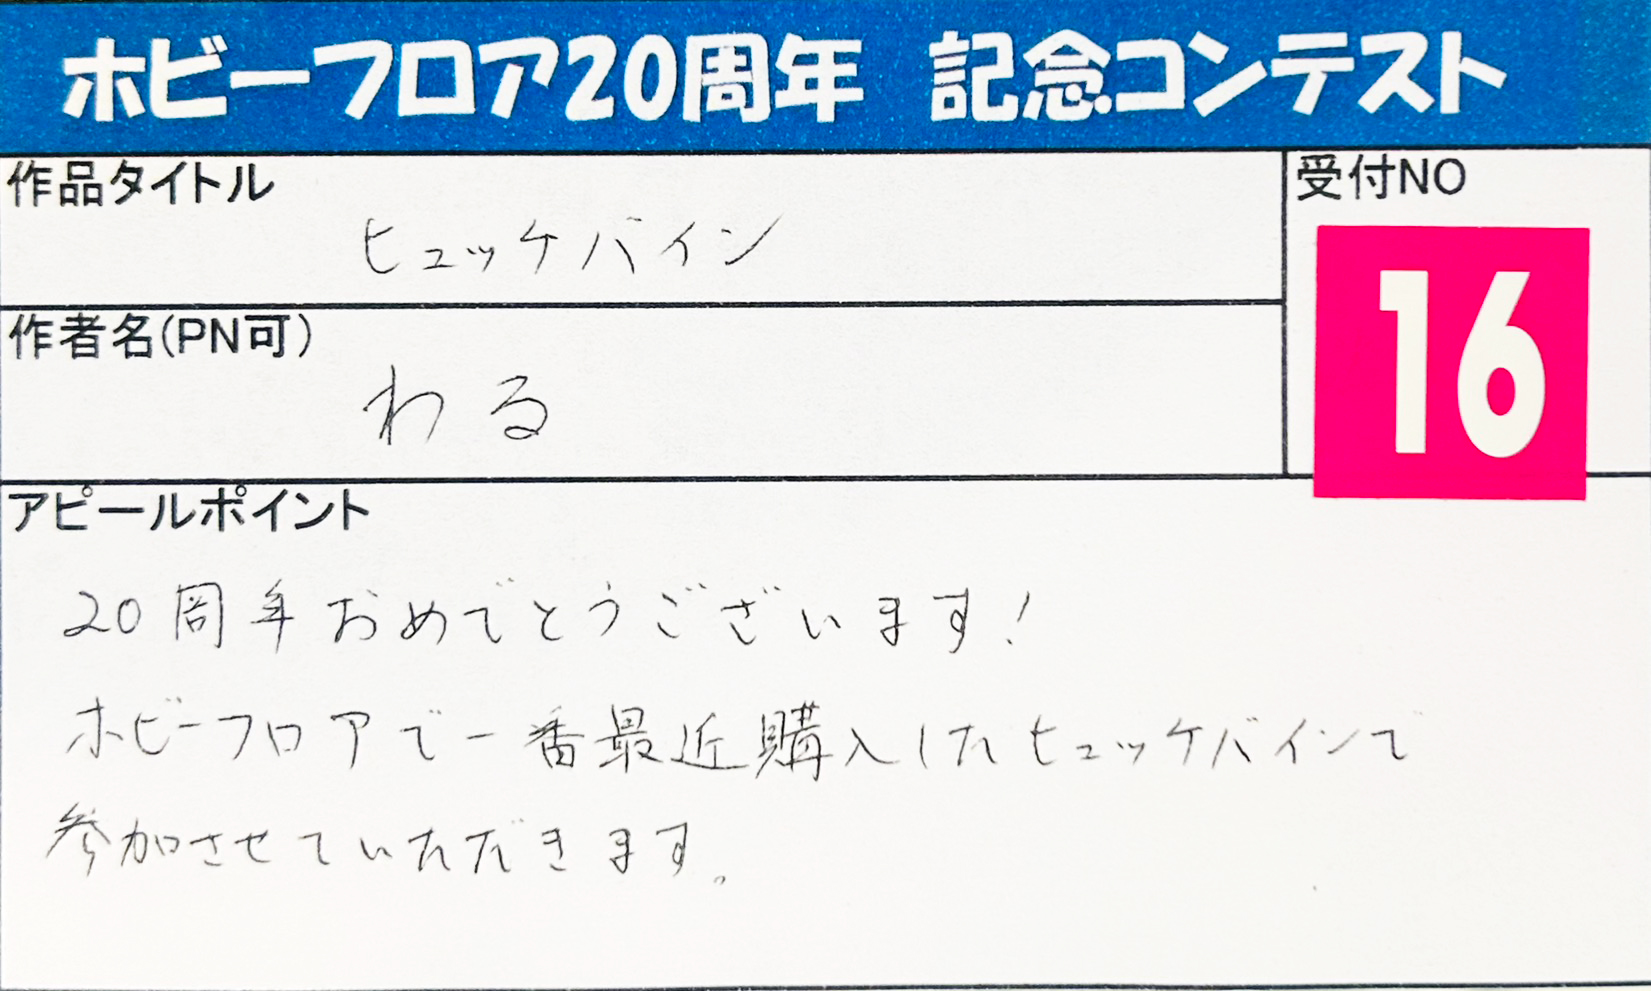 ホビーフロア20周年 記念コンテスト
作品タイトル
ヒュッケバイン
受付NO
16
作者名(PN可)
わる
アピールポイント
20周年おめでとうございます!
ホビーフロアで一番最近購入したヒュッケバインで
参加させていただきます。